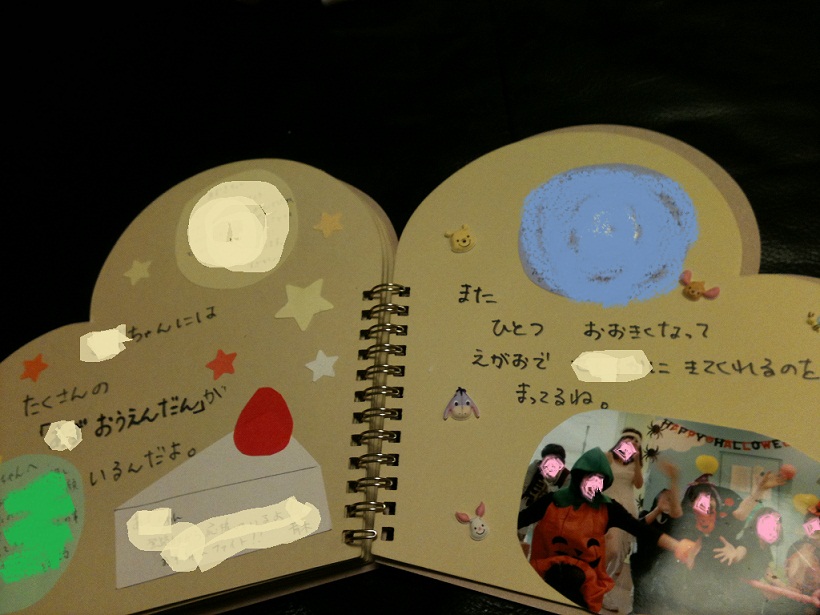 ちゃんには
たくさんの
おうえんだん」が
いるんだよ。
ファイト!!
また
ひとつ おおきくなって
えがおで に きてくれるのを
まってるね。
HAPPY HALLOWEE